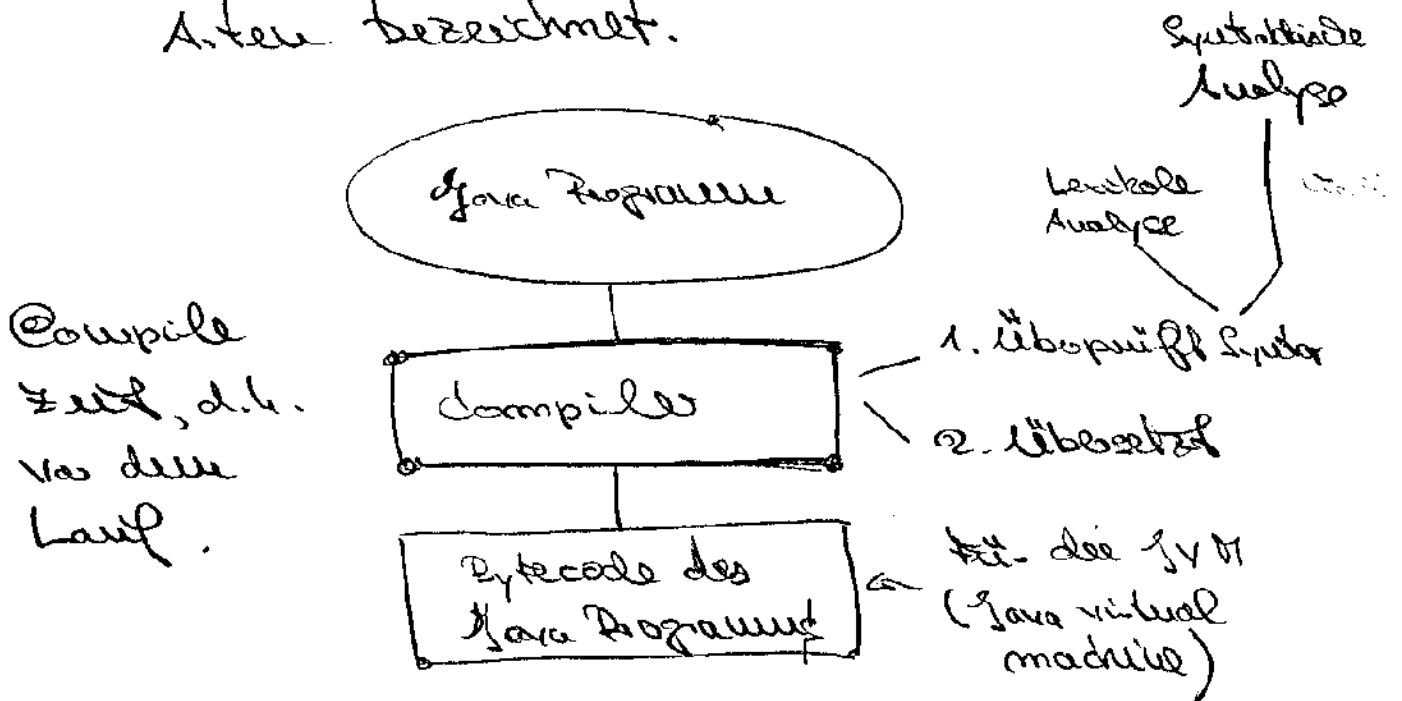 Arten bezeichnet.
Syntaktische
Analyse
Java Programm
Lexikale
Analyse
Compile
Zeit, d.h.
vor dem
Lauf.
Compiler
1. Überprüft Syntax
2. Übersetzt
Bytecode des
Java Programms
für die JVM
(Java virtual
machine)